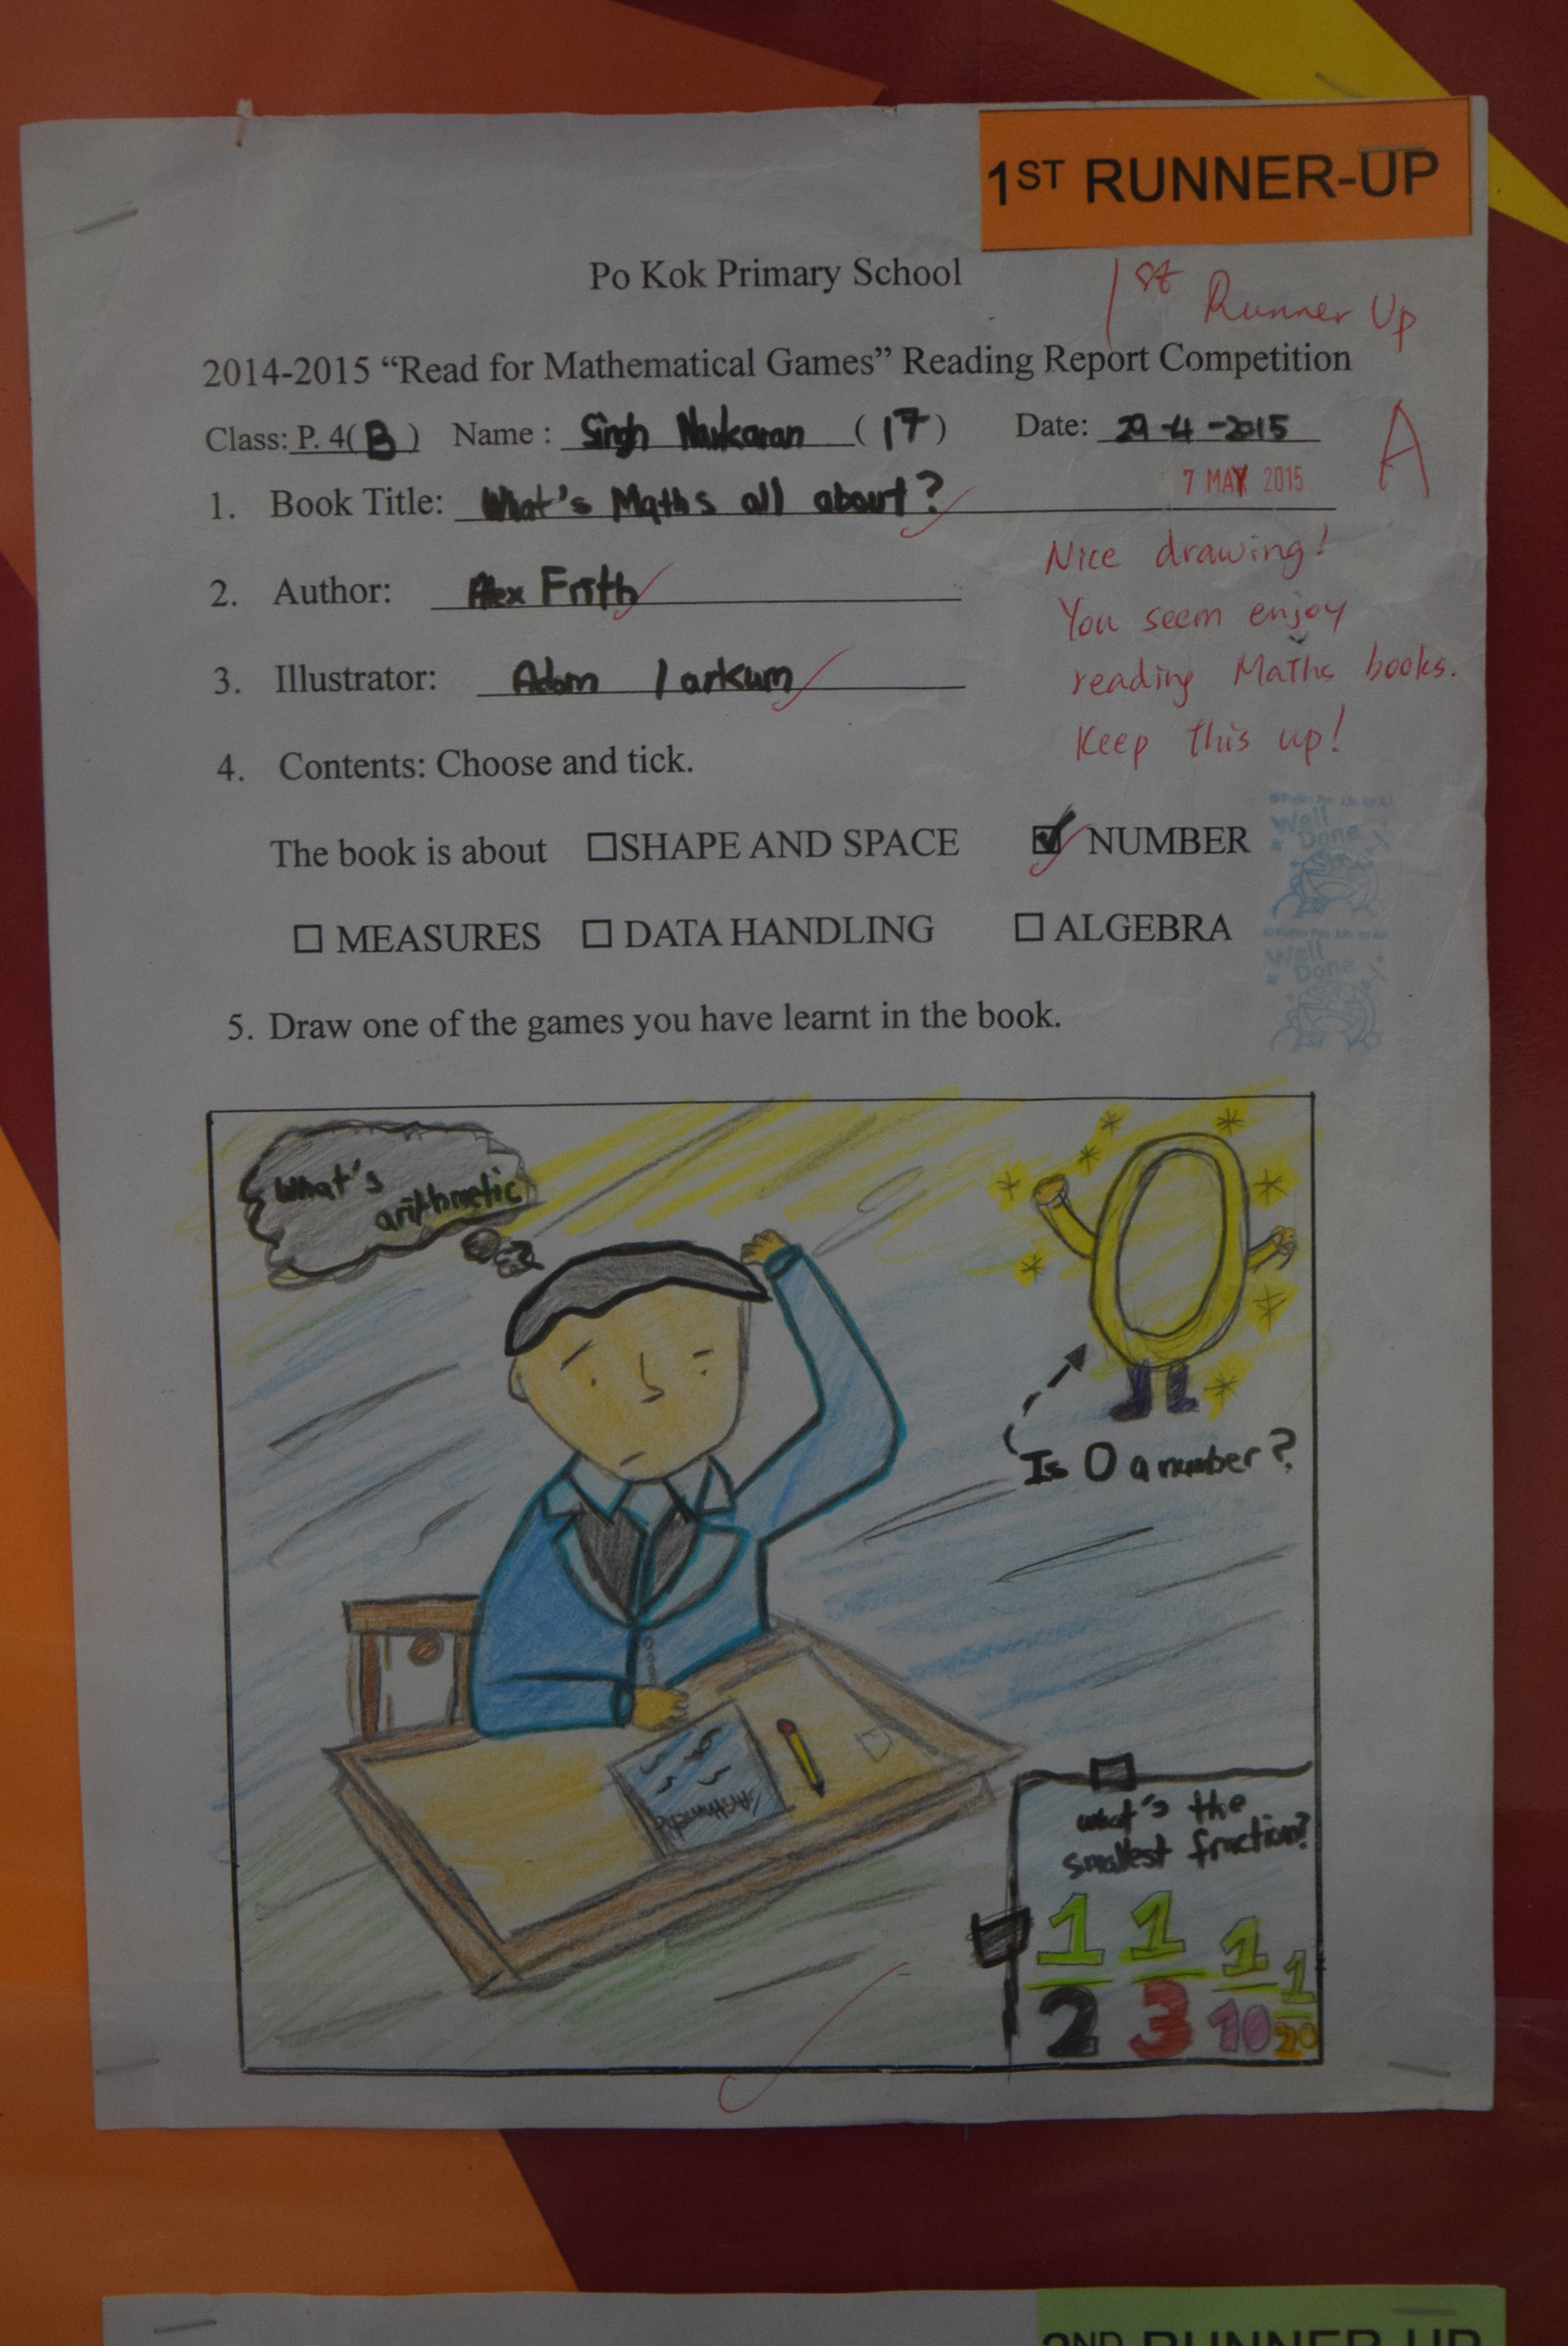 1ST RUNNER-UP
Po Kok Primary School
1st Runner Up
2014-2015 “Read for Mathematical Games” Reading Report Competition
Class: P. 4(B) Name : Singh (17) Date: 29-4-2015
A
7 MAY 2015
1. Book Title: What's Maths all about?
Nice drawing!
2. Author: Alex Frith
You seem enjoy
3. Illustrator: Adam larkum
reading Maths books.
Keep this up!
4. Contents: Choose and tick.
The book is about ☐SHAPE AND SPACE ☑ NUMBER
Well
Done
☐ MEASURES ☐ DATA HANDLING ☐ ALGEBRA
Well
Done
5. Draw one of the games you have learnt in the book.
What's
arithmetic
0
Is 0 a number?
Arithmetic
what's the
smallest fraction?
1 1 1 1
2 3 10 20
2ND RUNNER-UP